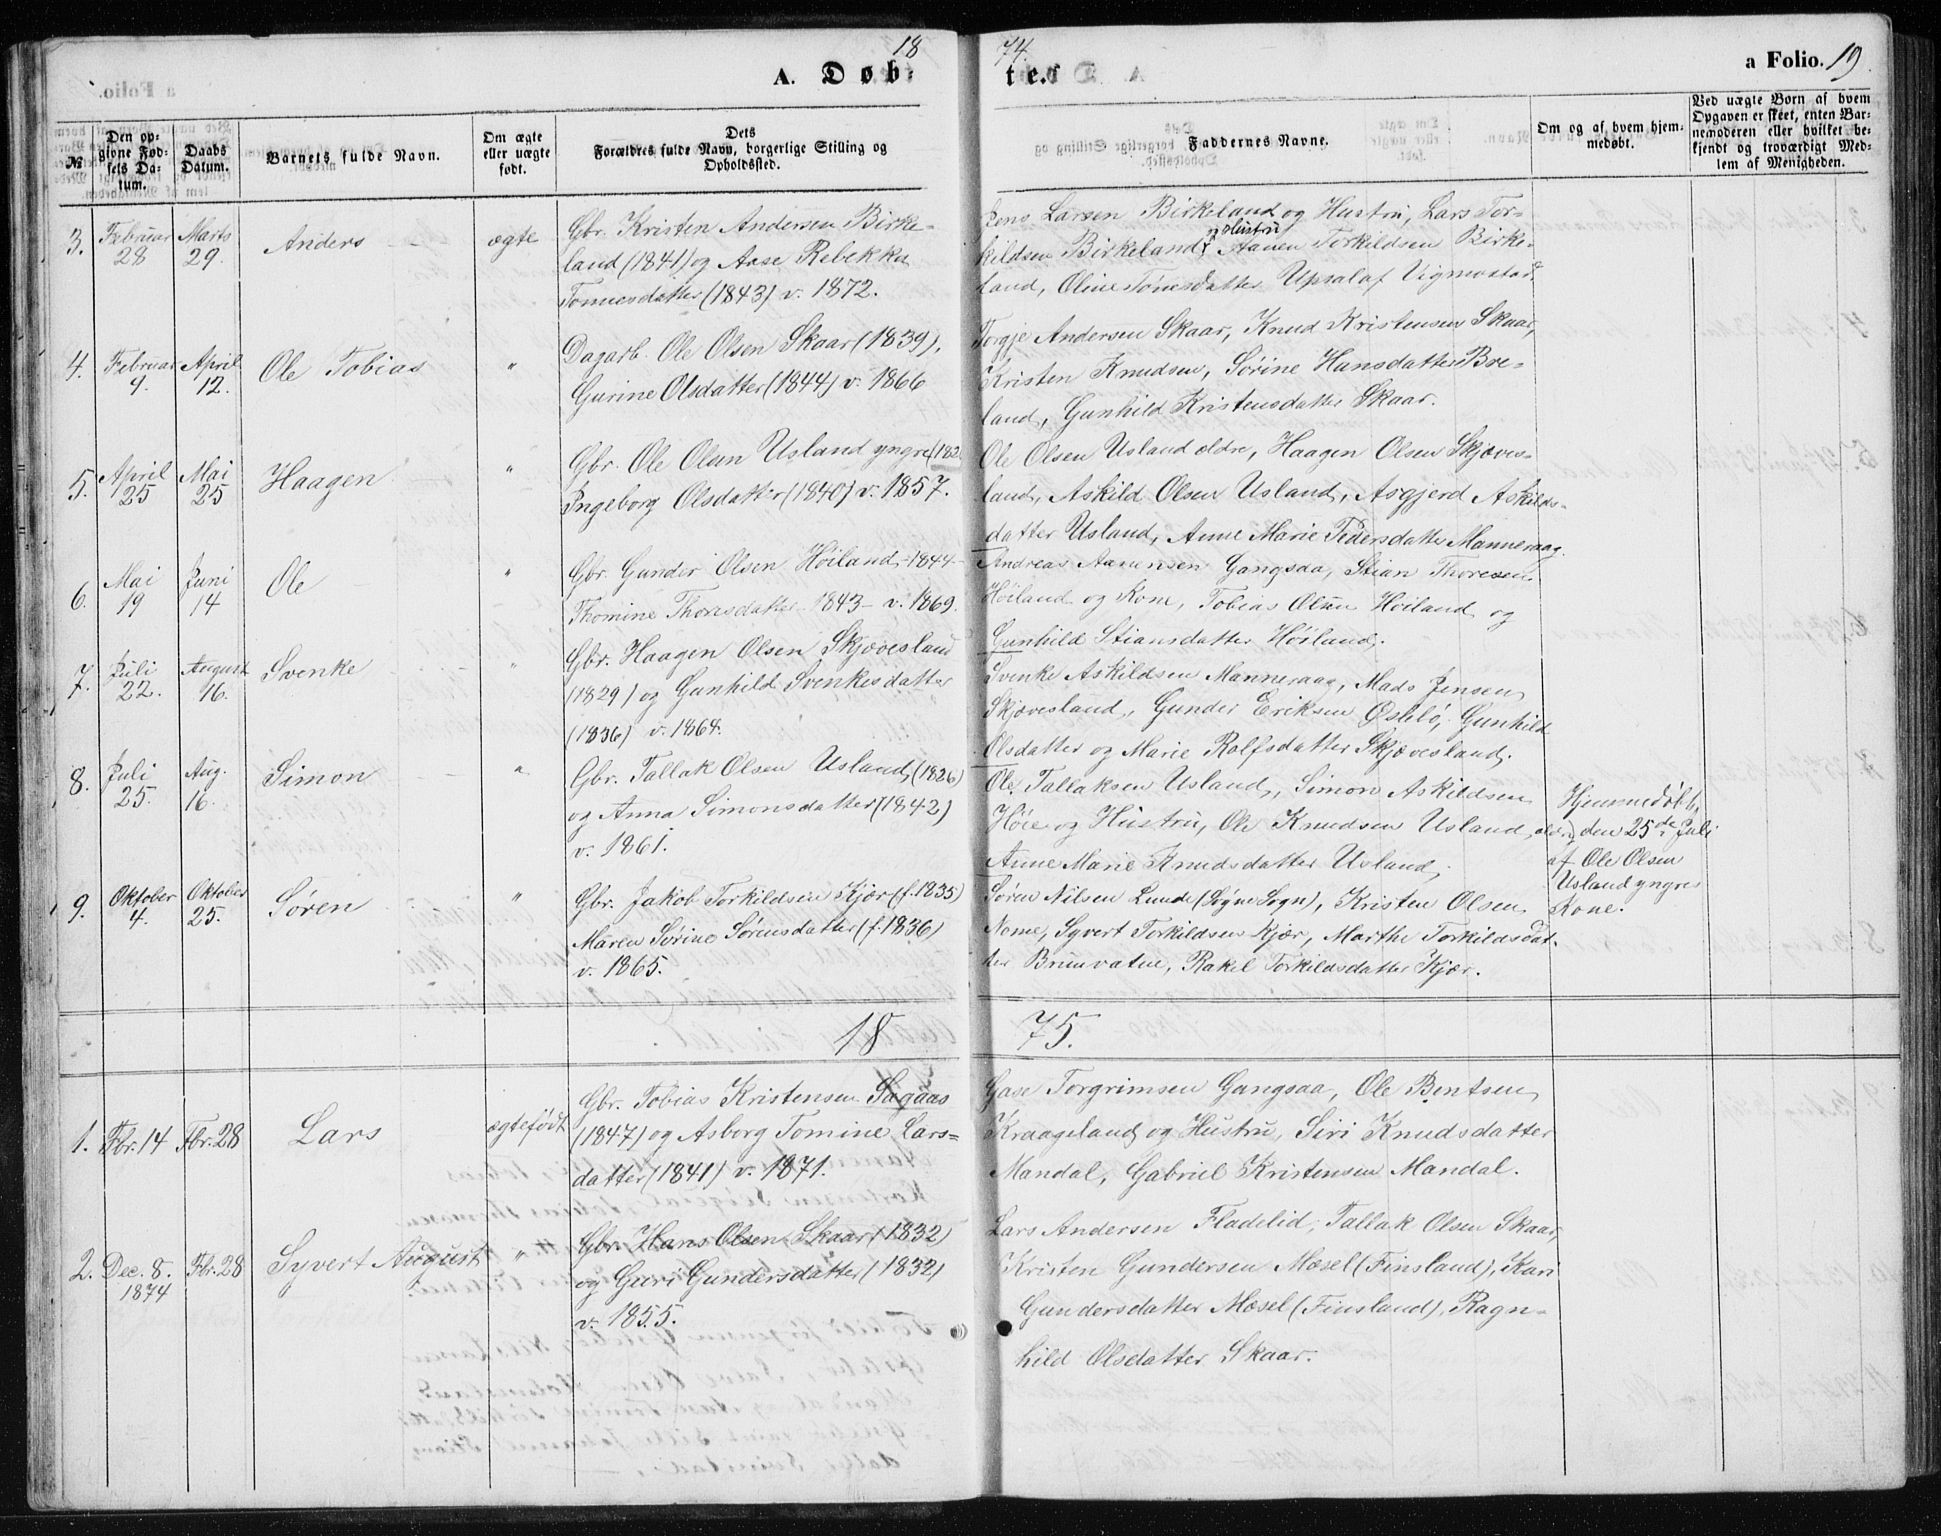 18 74.
A. Døbte.
a Folio. 19.
№
Den opgivne Fødsels Datum.
Daabs Datum.
Barnets fulde Navn.
Om ægte eller uægte født.
Dets Forældres fulde Navn, borgerlige Stilling og Opholdssted.
Faddernes Navne.
Om og af hvem hjemmedøbt.
Ved uægte Børn af hvem Opgaven er skeet, enten Barnemoderen eller hvilket bekjendt og troværdigt Medlem af Menigheden.
3. Februar 28 Marts 29. Anders ægte
Gbr. Kristen Andersen Birke-
land (1841) og Aase Rebekka
Tomnesdatter (1843) v. 1872.
Jens Larsen Birkeland og Hustru, Lars Tor-
kildsen Birkeland og Hustru, Aanen Torkildsen Birke-
land, Oline Tønesdatter Upsal af Vigmostad.
4. Februar 4. April 12. Ole Tobias "
Dagarb. Ole Olsen Skaar (1839),
Gurine Olsdatter (1844) v. 1866
Torgje Andersen Skaar, Knud Kristensen Skaar,
Kristen Knudsen, Sørine Hansdatter Bre-
land, Gunhild Kristensdatter Skaar.
5. April 25 Mai 25 Haagen "
Gbr. Ole Olsen Usland yngre (182
Ingeborg Olsdatter (1840) v. 1857.
Ole Olsen Usland ældre, Haagen Olsen Skjæves-
land, Askild Olsen Usland, Asgjerd Askilds-
datter Usland, Anne Marie Pedersdatter Manneraag.
6. Mai 19 Juni 14 Ole "
Gbr. Gunder Olsen Høiland - 1844 -
Thomine Thoresdatter - 1843 - v. 1869.
Andreas Aanensen Gangsaa, Stian Thoresen
Høiland og Kone, Tobias Olsen Høiland og
Gunhild Stiansdatter Høiland.
7. Juli 22. August 16. Svenke "
Gbr. Haagen Olsen Skjævesland
(1829) og Gunhild Svenkesdatter
(1836) v. 1868.
Svenke Askildsen Manneraag, Mads Jensen
Skjævesland, Gunder Eriksen Øslebø, Gunhild
Olsdatter og Marie Rolfsdatter Skjævesland.
8. Juli 25. Aug. 16. Simon "
Gbr. Tallak Olsen Usland (1826)
og Anna Simonsdatter (1842)
v. 1861.
Ole Tallaksen Usland, Simon Askildsen
Høie og Hustru, Ole Knudsen Usland,
Anne Marie Knudsdatter Usland.
Hjemmedøbt
den 25de Juli
af Ole Olsen
Usland yngres
Kone.
9. Oktober 4. Oktober 25. Søren "
Gbr. Jakob Torkildsen Kjær (f. 1835)
Maren Sørine Sørensdatter (f. 1836)
v. 1865.
Søren Nilsen Lunde (Søgne Sogn), Kristen Olsen
Nome, Syvert Torkildsen Kjær, Marthe Torkildsdat-
ter Brunvatne, Rakel Torkildsdatter Kjær.
18 75.
1. Fbr. 14 Fbr. 28 Lars ægtefødt
Gbr. Tobias Kristensen Sagaas
(1847) og Asborg Tomine Lars=
datter (1841) v. 1871.
Gase Torgrimsen Gangsaa, Ole Bentsen
Kraageland og Hustru, Siri Knudsdatter
Mandal, Gabriel Kristensen Mandal.
2. Dec. 8. 1874 Fbr. 28 Syvert August "
Gbr. Hans Olsen Skaar (1832)
og Guri Gundersdatter (1832)
v. 1855.
Lars Andersen Fladelid, Tallak Olsen Skaar,
Kristen Gundersen Mæsel (Finsland), Kari
Gundersdatter Mæsel (Finsland), Ragn-
hild Olsdatter Skaar.